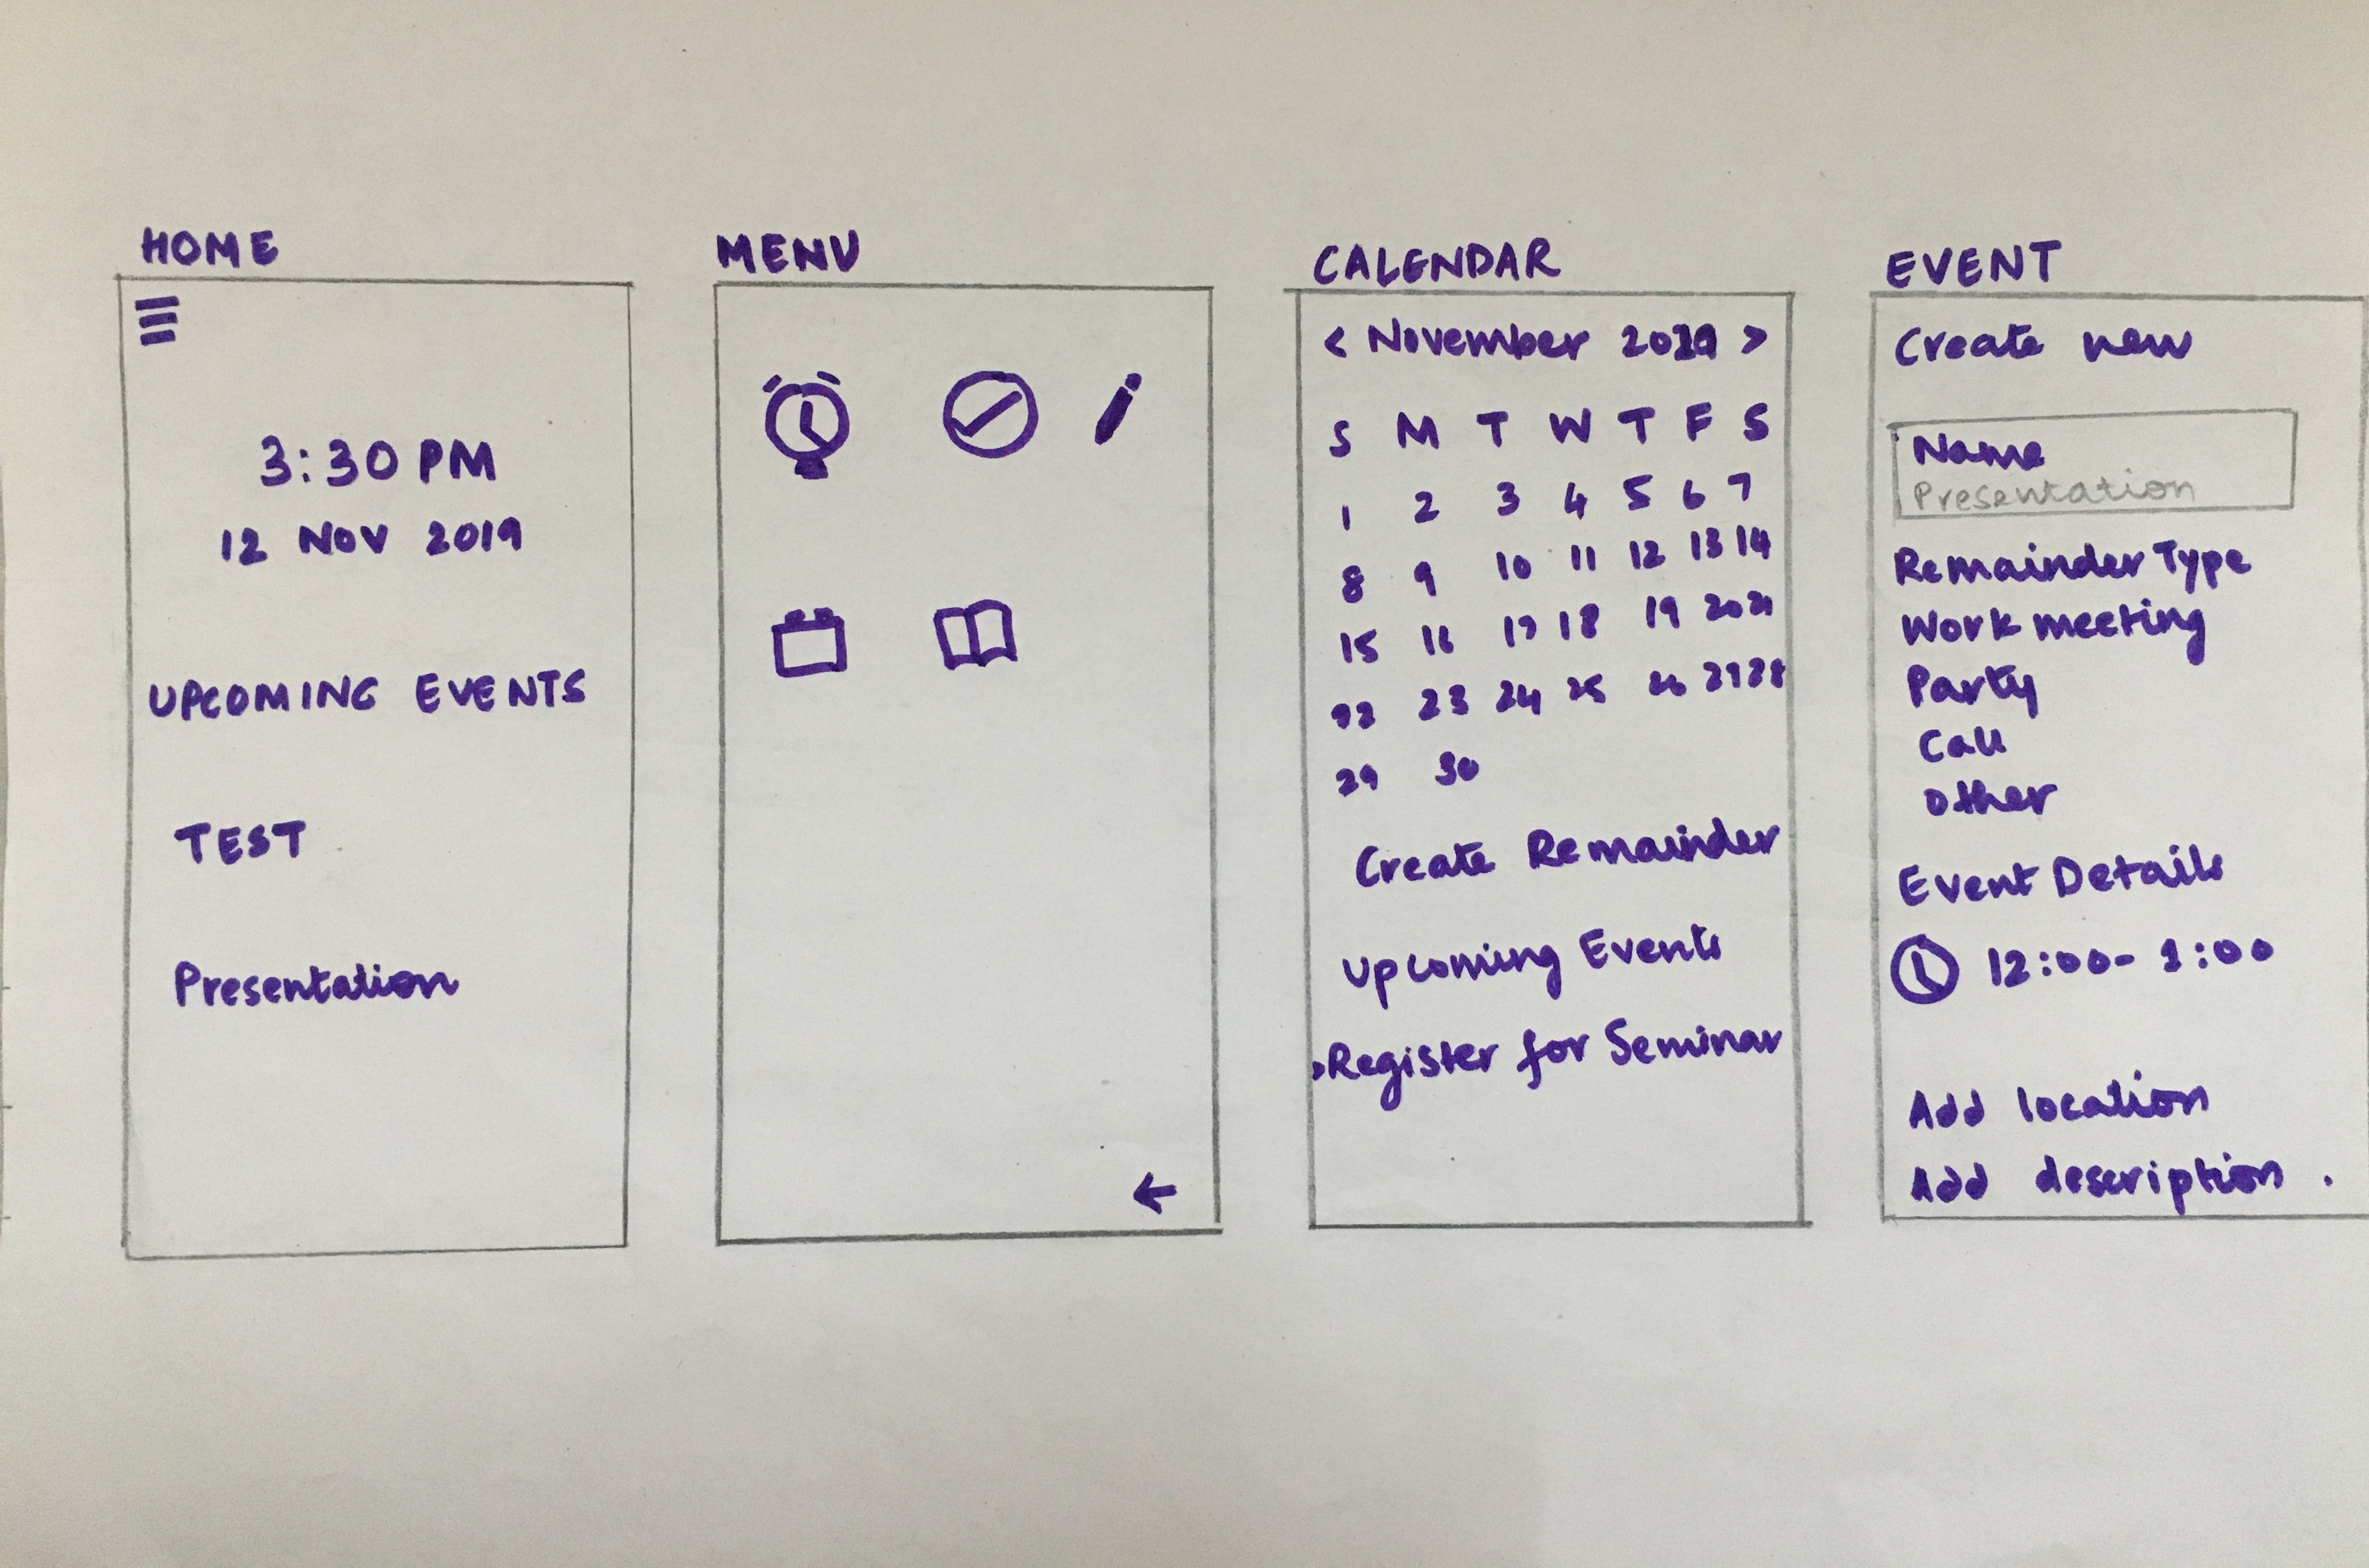 HOME
3:30 PM
12 NOV 2019
UPCOMING EVENTS
TEST
Presentation
MENU
CALENDAR
< November 2019 >
S M T W T F S
1 2 3 4 5 6 7
8 9 10 11 12 13 14
15 16 17 18 19 20 21
22 23 24 25 26 27 28
29 30
Create Remainder
Upcoming Events
Register for Seminar
EVENT
Create new
Name
Presentation
Remainder Type
Work meeting
Party
Call
Other
Event Details
12:00- 1:00
Add location
Add description .